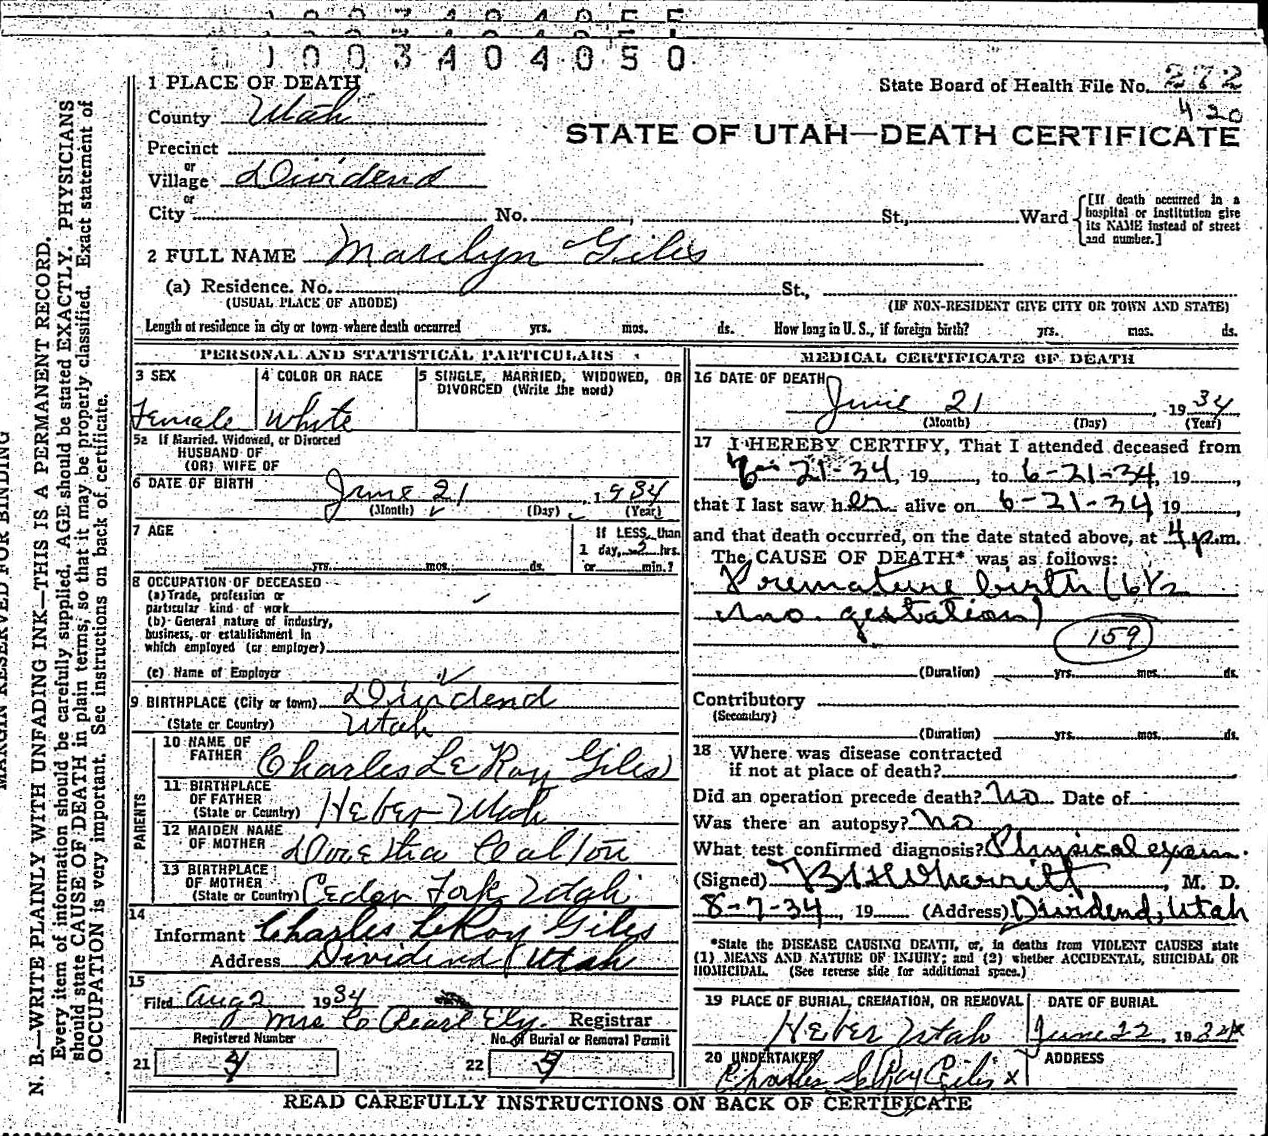 1003404050
1 PLACE OF DEATH
State Board of Health File No. 272
County Utah
420
STATE OF UTAH—DEATH CERTIFICATE
Precinct
or
Village Dividend
or
City No. , St., Ward
[If death occurred in a hospital or institution give its NAME instead of street and number.]
2 FULL NAME Marilyn Giles
(a) Residence. No. St.,
(USUAL PLACE OF ABODE) (IF NON-RESIDENT GIVE CITY OR TOWN AND STATE)
Length of residence in city or town where death occurred yrs. mos. ds. How long in U. S., if foreign birth? yrs. mos. ds.
PERSONAL AND STATISTICAL PARTICULARS
3 SEX
Female
4 COLOR OR RACE
White
5 SINGLE, MARRIED, WIDOWED, OR DIVORCED (Write the word)
5a If Married, Widowed, or Divorced
HUSBAND OF
(OR) WIFE OF
6 DATE OF BIRTH June 21, 1934
(Month) (Day) (Year)
7 AGE
yrs. mos. ds.
If LESS than
1 day, 2 hrs.
or min.?
8 OCCUPATION OF DECEASED
(a) Trade, profession or
particular kind of work
(b) General nature of industry,
business, or establishment in
which employed (or employer)
(c) Name of Employer
9 BIRTHPLACE (City or town) Dividend
(State or Country) Utah
PARENTS
10 NAME OF
FATHER Charles LeRoy Giles
11 BIRTHPLACE
OF FATHER
(State or Country) Heber Utah
12 MAIDEN NAME
OF MOTHER
13 BIRTHPLACE
OF MOTHER
(State or Country) Cedar Fork Utah
14
Informant Charles LeRoy Giles
Address Dividend, Utah
15
Filed Aug 2 1934
Mrs C Pearl Ely. Registrar
Registered Number No. of Burial or Removal Permit
21
22
MEDICAL CERTIFICATE OF DEATH
16 DATE OF DEATH
June 21, 1934
(Month) (Day) (Year)
17 I HEREBY CERTIFY, That I attended deceased from
6-21-34, 19 , to 6-21-34, 19 ,
that I last saw her alive on 6-21-34 19 ,
and that death occurred, on the date stated above, at 4 p.m.
The CAUSE OF DEATH* was as follows:
Premature birth (6 1/2
mo. gestation)
159
(Duration) yrs. mos. ds.
Contributory
(Secondary)
(Duration) yrs. mos. ds.
18 Where was disease contracted
if not at place of death?
Did an operation precede death? No Date of
Was there an autopsy? no
What test confirmed diagnosis? Physical exam.
(Signed) , M. D.
8-7-34, 19 (Address) Dividend, Utah
*State the DISEASE CAUSING DEATH, or, in deaths from VIOLENT CAUSES state
(1) MEANS AND NATURE OF INJURY; and (2) whether ACCIDENTAL, SUICIDAL OR
HOMICIDAL. (See reverse side for additional space.)
19 PLACE OF BURIAL, CREMATION, OR REMOVAL
Heber Utah
DATE OF BURIAL
June 22, 1934
20 UNDERTAKER
Charles LeRoy Giles x
ADDRESS
READ CAREFULLY INSTRUCTIONS ON BACK OF CERTIFICATE
MARGIN RESERVED FOR BINDING
N. B.—WRITE PLAINLY WITH UNFADING INK—THIS IS A PERMANENT RECORD.
Every item of information should be carefully supplied. AGE should be stated EXACTLY. PHYSICIANS
should state CAUSE OF DEATH in plain terms, so that it may be properly classified. Exact statement of
OCCUPATION is very important. See instructions on back of certificate.